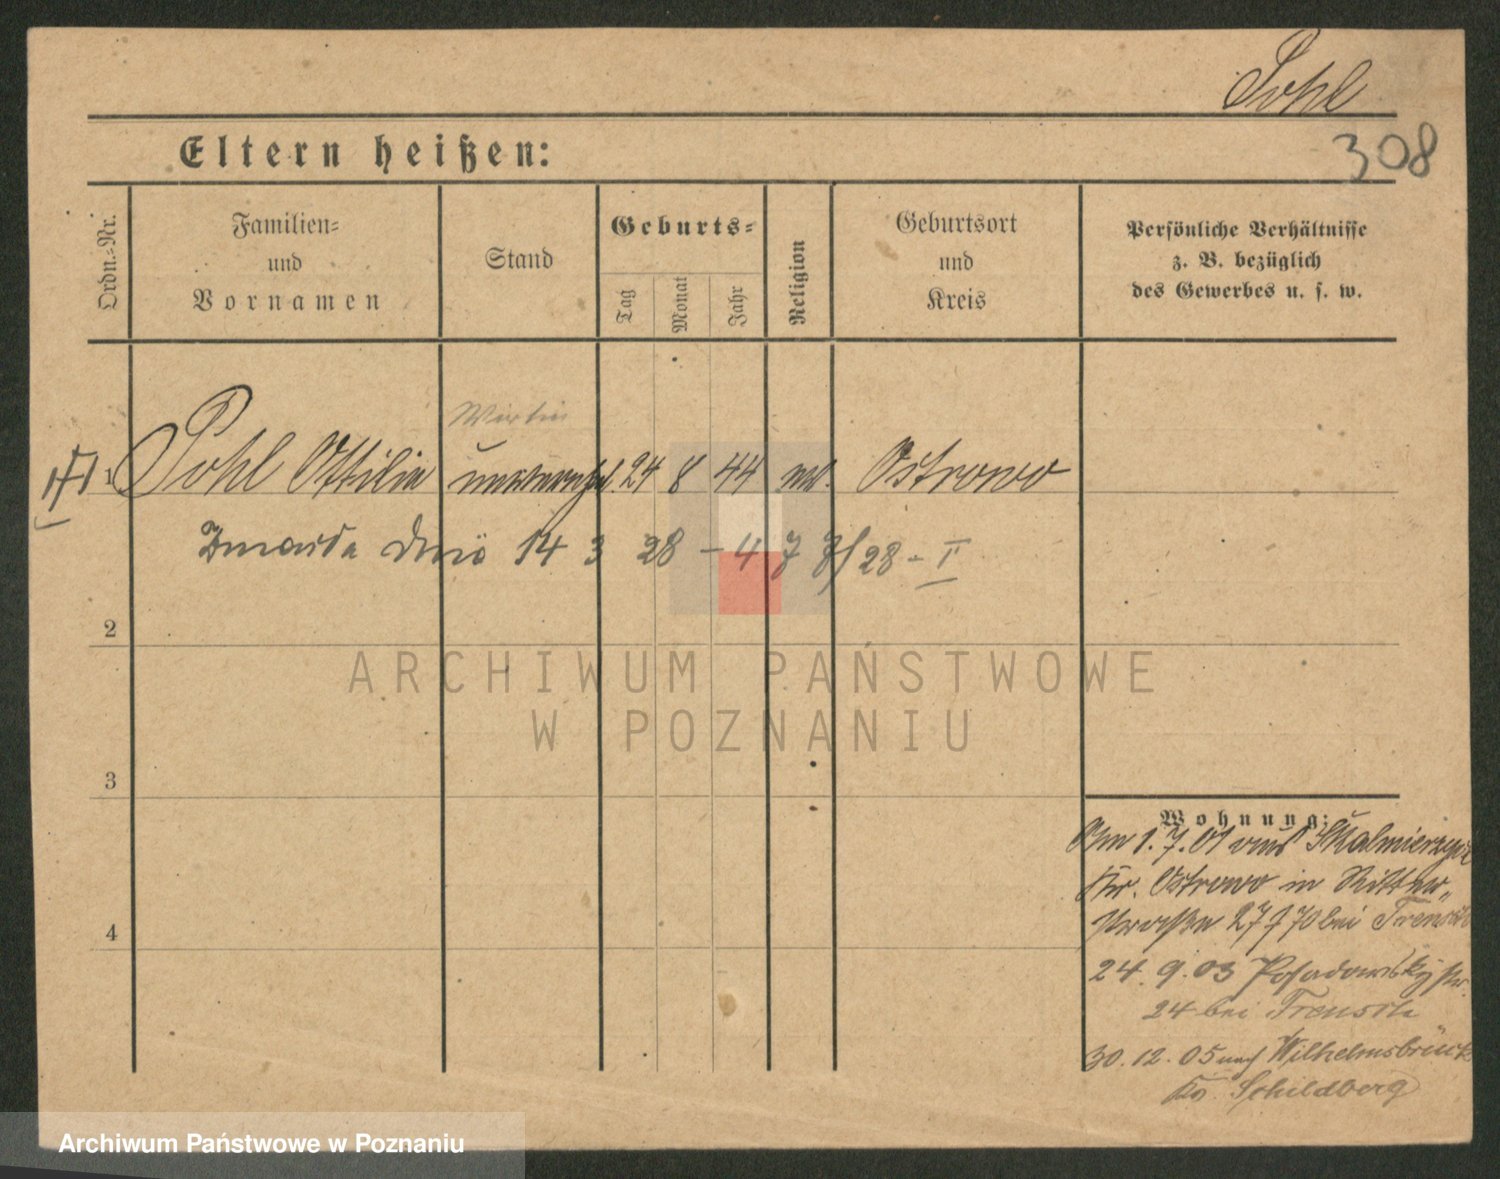 Pohl
308
Eltern heißen:
Ordn.=Nr.
Familien=
und
Vornamen
Stand
Geburts=
Tag
Monat
Jahr
Religion
Geburtsort
und
Kreis
Persönliche Verhältnisse
z. B. bezüglich
des Gewerbes u. s. w.
Wirtin
1 Pohl Ottilie unverehel. 24 8 44 Ostrowo
Zmarła dnia 14 3 28 – 477/28 – II
2
ARCHIWUM PAŃSTWOWE
W POZNANIU
3
4
Wohnung:
Am 1.7.01 aus Skalmierzyce
Kr. Ostrowo in Ritter„
straße 27 bei
24.9.03 Posadowsky str.
24 bei
30.12.05 nach Wilhelmsbrück
Kr. Schildberg
Archiwum Państwowe w Poznaniu